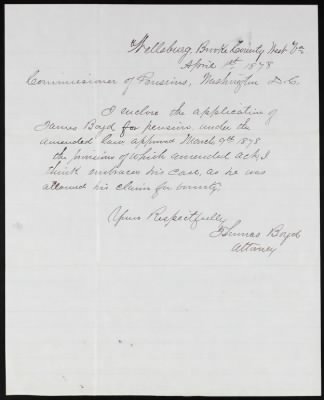 Wellsburg, Brooke County West Va
April 1st 1878
Commissioner of Pensions, Washington D.C.
I enclose the application of
James Boyd for pension, under the
amended law, approved March 9th 1878
the provisions of which amended act, I
think embraces his case, as he was
allowed his claim for bounty.
Yours Respectfully
Thomas Boyd
Attorney